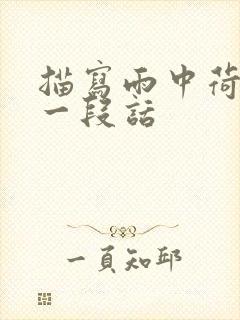 描寫雨中荷
一段話
一頁知邱